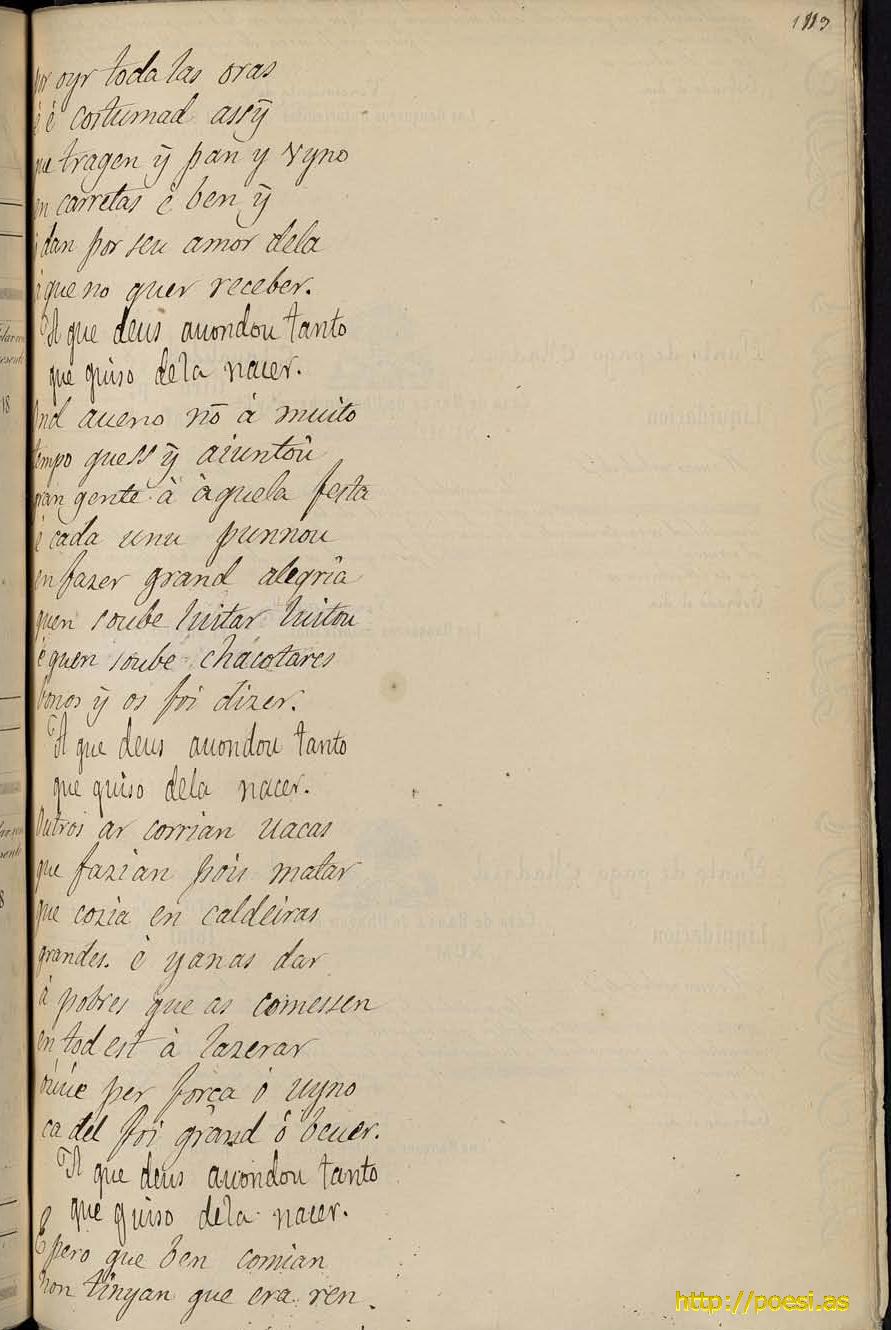 1113
por oyr toda las oras
é é costumad assȳ
que tragen ȳ pan y vyno
en carretas é ben ȳ
dan por seu amor dela
á que no quer receber.
A que deus auondou tanto
que quiso dela nacer.
end aueno nō á muito
tempo quess ȳ aiuntou
gran gente à àquela festa
é cada unu punnou
en fazer grand alegria
quen soube luitar luitou
é quen soube chacotares
bonos ȳ os foi dizer.
A que deus auondou tanto
que quiso dela nacer.
Outros ar corrian uacas
que fazian pois matar
que cozia en caldeiras
grandes. é yanas dar
á pobres que as comessen
en tod est à lazerar
per força ó uyno
ca del foi grand ó beuer.
A que deus auondou tanto
que quiso dela nacer.
E pero que ben comian
non tinyan que era ren.
http://poesi.as